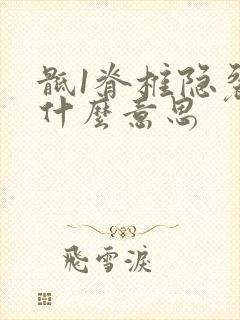 骶1脊椎隐裂
什麼意思
飛雪淚